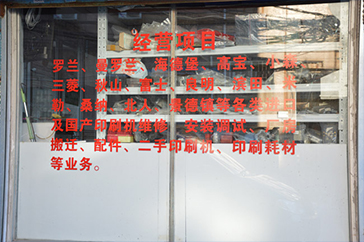 经营项目
罗兰、曼罗兰、海德堡、高宝、小森
三菱、秋山、富士、良明、滨田、
勒、桑纳、北人、景德镇等各类
及国产印刷机维修、安装调试、厂房
搬迁、配件、二手印刷机、印刷耗材
等业务。